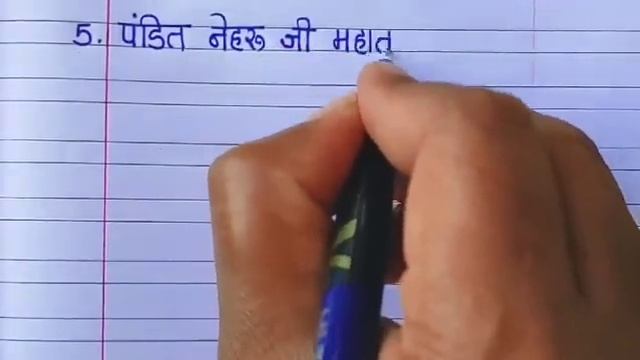 5. पंडित नेहरू जी महात